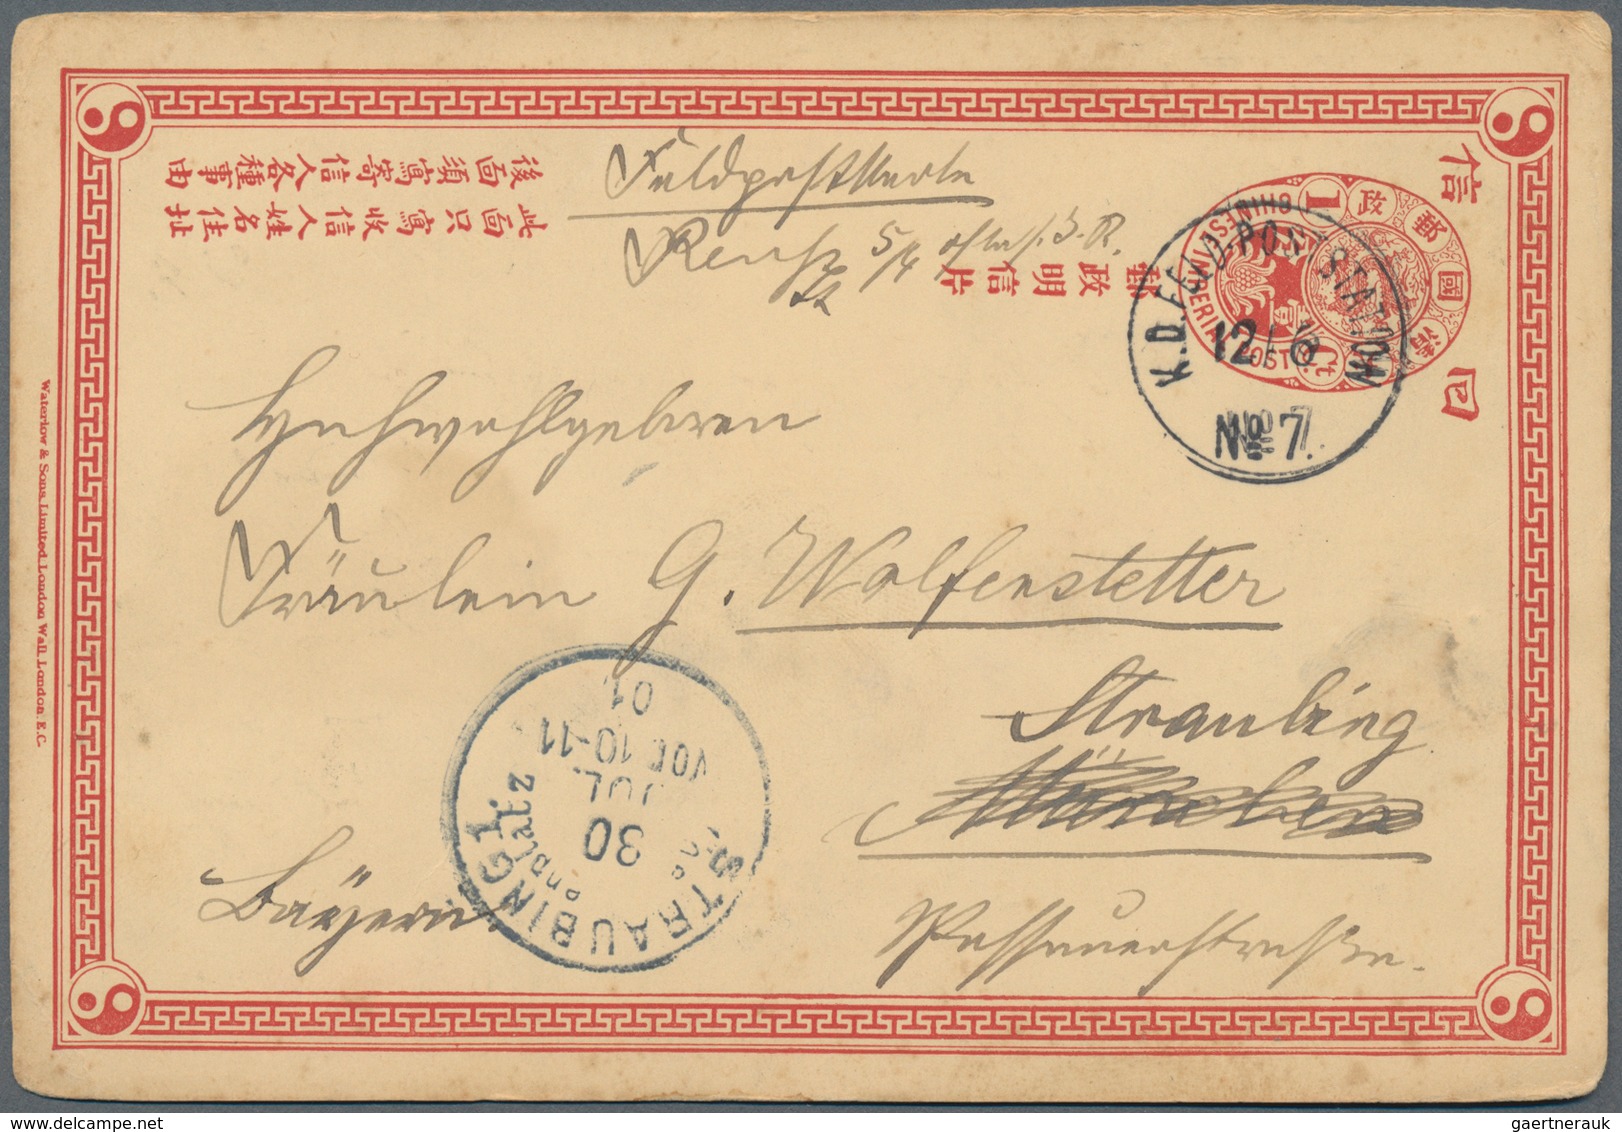 Feldpostkarte
5/4
郵政明信片
此面只寫收信人姓名住址
後面須寫寄信人各種事由
信
回
大清國郵政
CHINESE IMPERIAL POST
1
壹
K.D. FELD-POSTSTATION
12/6
No 7.
Hochwohlgeboren
Fräulein G. Wolfenstetter
Straubing
München
Passauerstraße.
Bayern
STRAUBING 1.
30
JUL.
VOR 10-11
01.
Waterlow & Sons Limited, London Wall, London. E.C.
gaertnerauk
www.delcampe.net